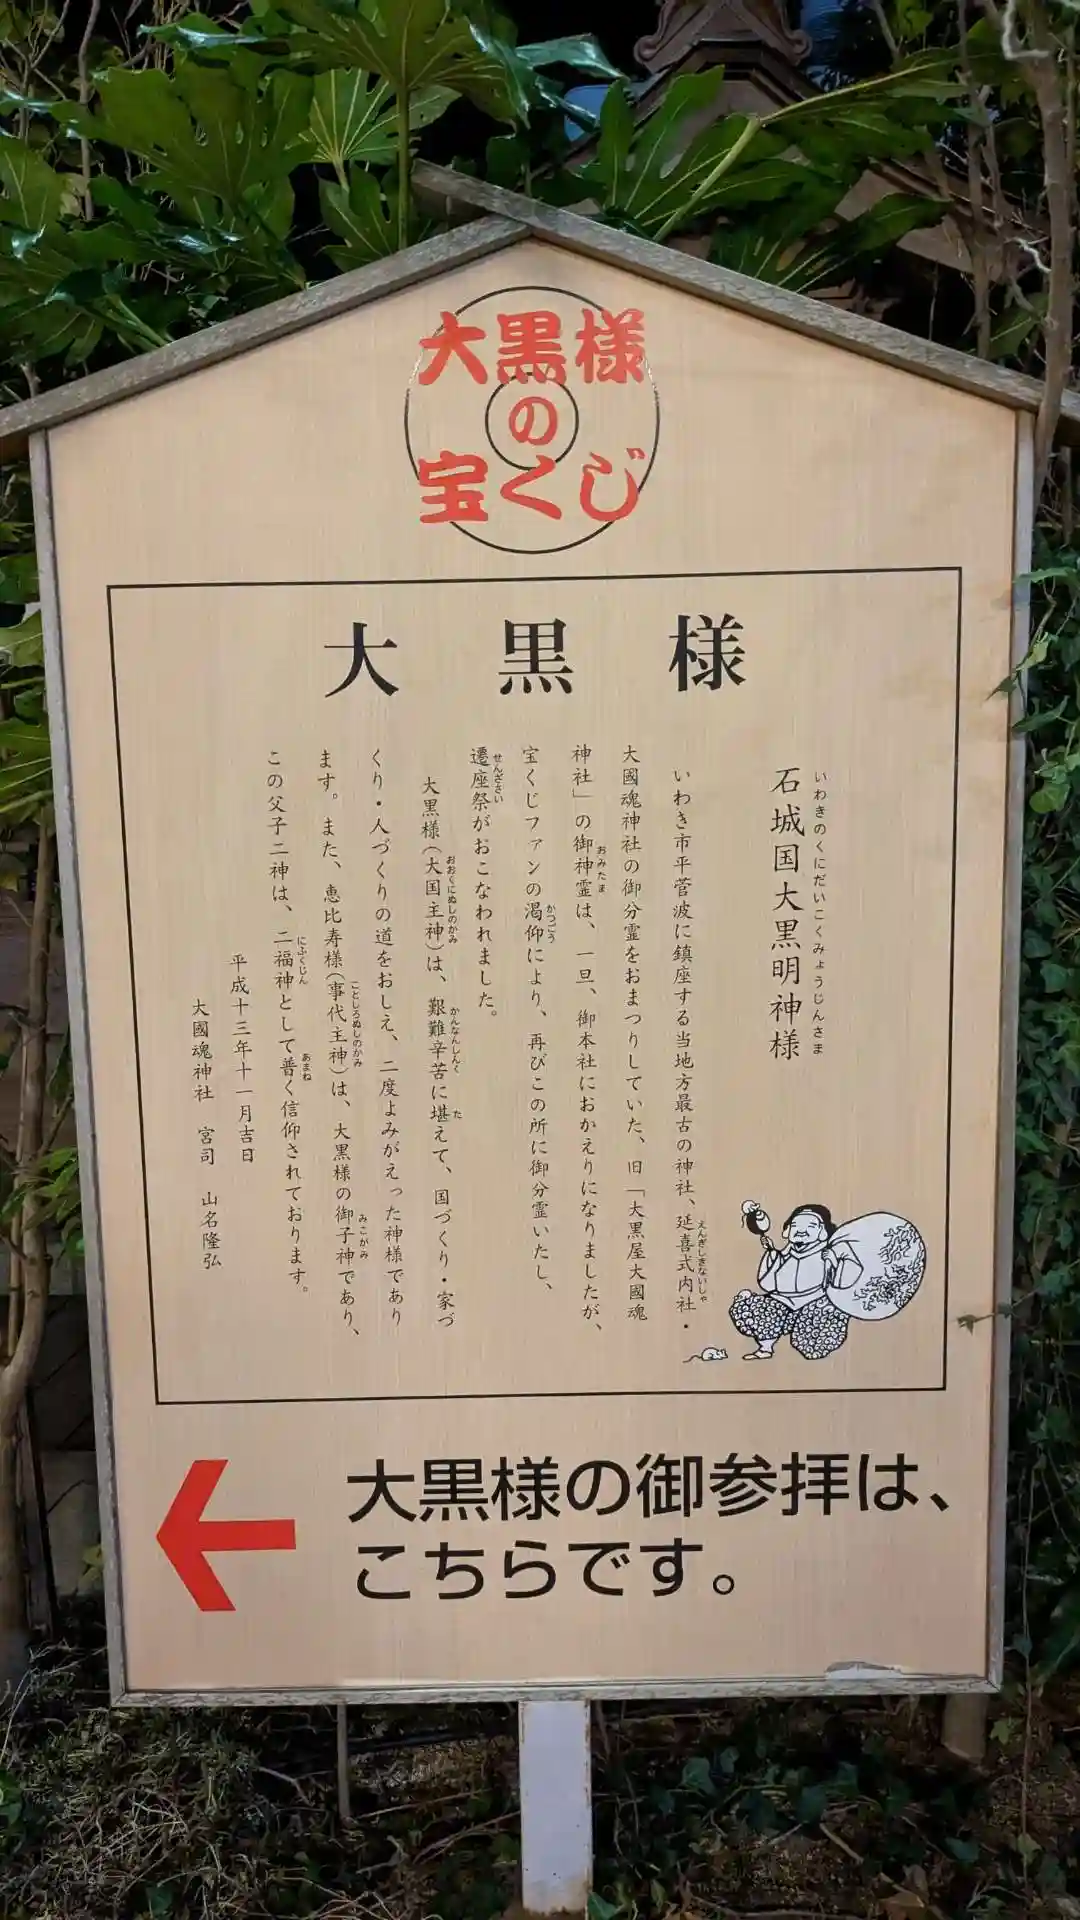 大黒様
の
宝くじ
大黒様
石城国大黒明神様
いわきのくにだいこくみょうじんさま
いわき市平菅波に鎮座する当地方最古の神社、延喜式内社・
えんぎしきないしゃ
大國魂神社の御分霊をおまつりしていた、旧「大黒屋大國魂
神社」の御神霊は、一旦、御本社におかえりになりましたが、
おみたま
宝くじファンの渇仰により、再びこの所に御分霊いたし、
かつごう
遷座祭がおこなわれました。
せんざさい
大黒様(大国主神)は、艱難辛苦に堪えて、国づくり・家づ
おおくにぬしのかみ かんなんしんく た
くり・人づくりの道をおしえ、二度よみがえった神様であり
ます。また、恵比寿様(事代主神)は、大黒様の御子神であり、
ことしろぬしのかみ みこがみ
この父子二神は、二福神として普く信仰されております。
にふくじん あまね
平成十三年十一月吉日
大國魂神社 宮司 山名隆弘
大黒様の御参拝は、
こちらです。